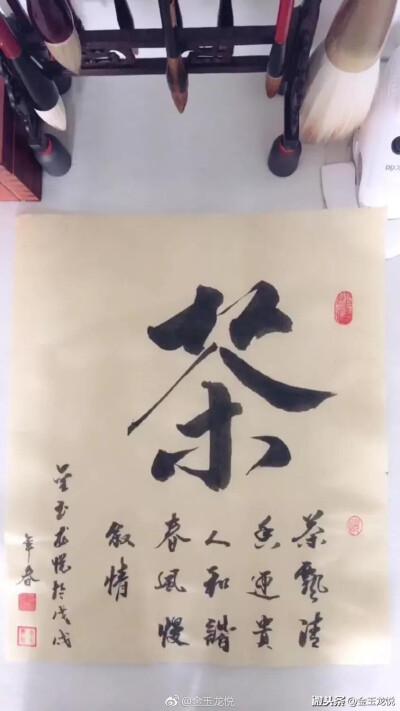 茶
茶飘清
香迎貴
人和諧
春風慢
叙情
金玉龙悦於戊戌
年春
@金玉龙悦
微头条/@金玉龙悦